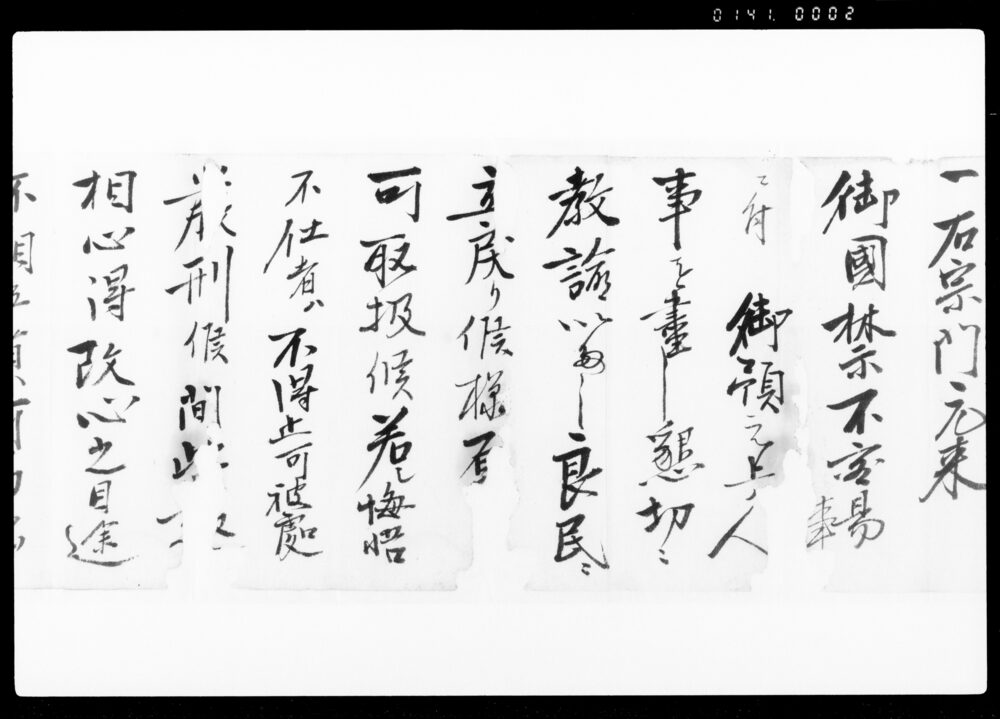 0141. 0002
一右宗門元来
御國禁不容易事
ニ付 御預之上ハ人
事を盡し懇切ニ
教諭いたし良民ニ
立戻り候様
可取扱候若し悔悟
不仕者ハ不得止可被處
嚴刑候間此
相心得改心之目途
不相立